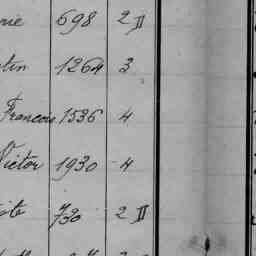 rie 698 2 II
tin 1264 3
Francois 1536 4
Victor 1930 4
ste 730 2 II